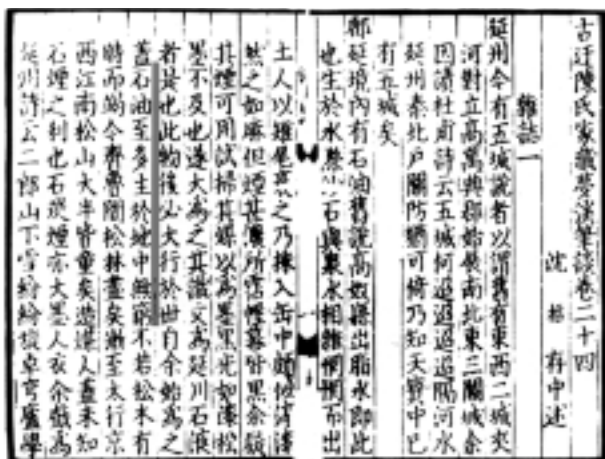 古迂陳氏家藏夢溪筆談卷二十四
沈括存中述
雜誌一
延州今有五城說者以謂舊有東西二城夾
河對立高萬興郡始展南北東三關城余
因讀杜甫詩云五城何迢迢迢迢隔河水
延州秦北戶關防猶可倚乃知天寶中已
有五城矣
鄜延境內有石油舊說高奴縣出脂水即此
也生於水際沙石與泉水相雜惘惘而出
土人以雉尾裛之乃採入缶中頗似淳漆
然之如麻但煙甚濃所霑幄幕皆黑余疑
其煙可用試掃其煤以為墨黑光如漆松
墨不及也遂大為之其識文為延川石液
者是也此物後必大行於世自余始為之
蓋石油至多生於地中無窮不若松木有
時而竭今齊魯間松林盡矣漸至太行京
西江南松山大半皆童矣造煤人蓋未知
石煙之利也石炭煙亦大墨人衣余戲為
延州詩云二郎山下雪紛紛旋卓穹廬學